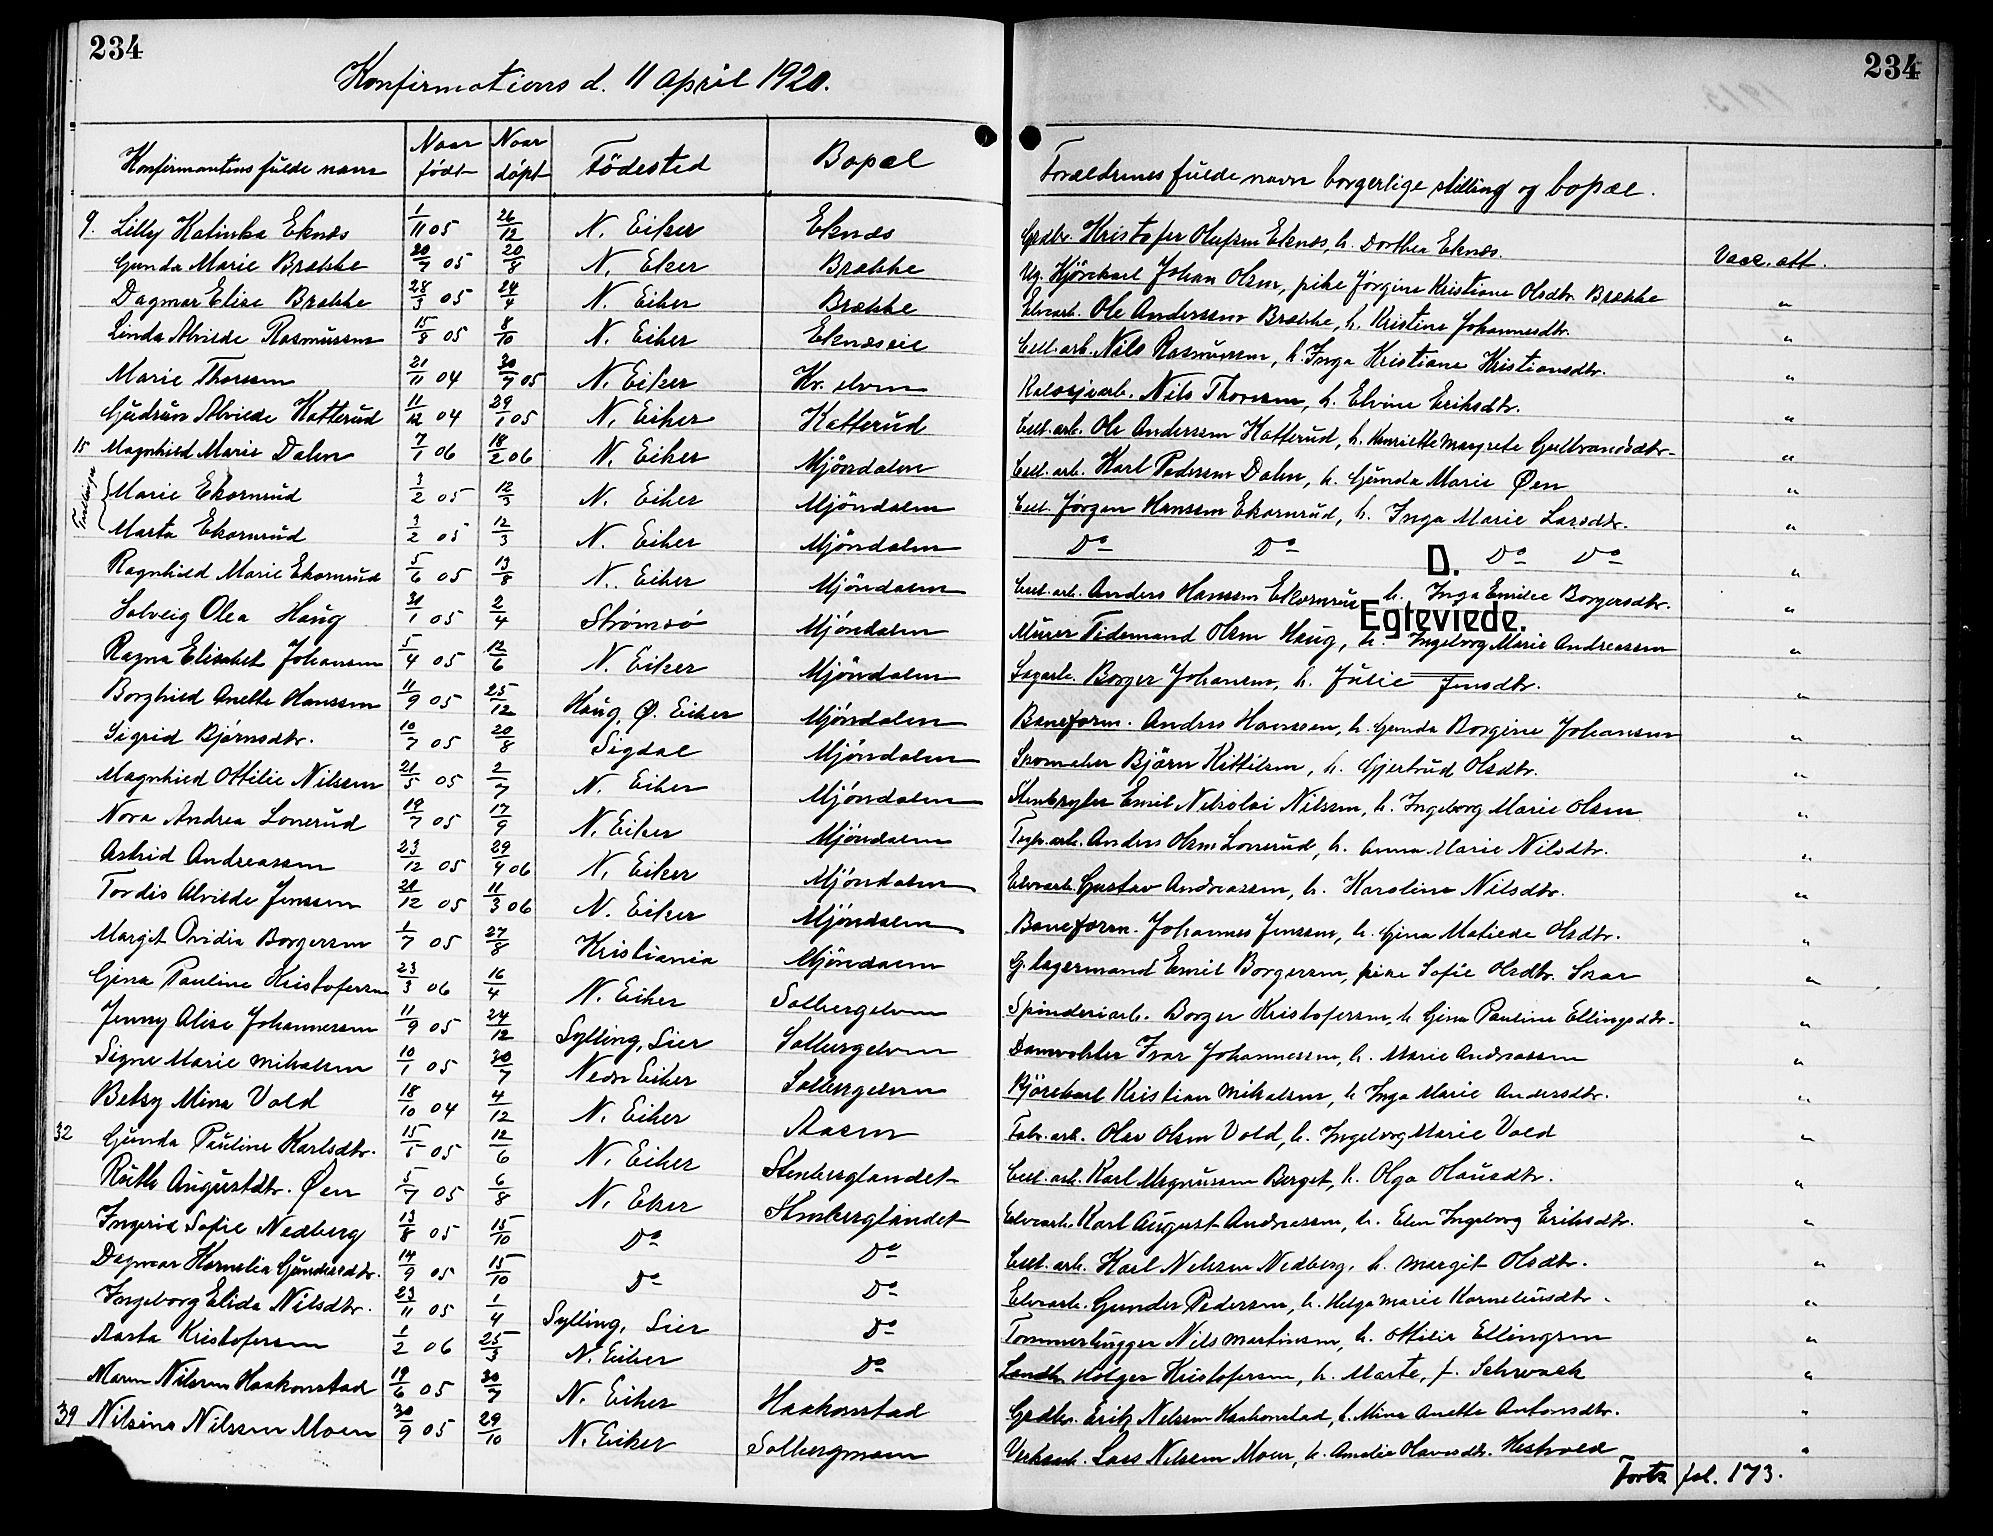 234
234
Konfirmations d. 11 April 1920.
Konfirmantens fulde navn | Naar født | Naar döpt | Födested | Bopæl | Forældrenes fulde navn borgerlige stilling og bopæl.
9. Lilly Katinka Eknes 1/11 05 26/12 N. Eiker Eknes Grdbr. Kristofer Olufsen Eknes, h. Dorthea Eknes. Vacc. att.
Gunda Marie Brække 20/7 05 20/8 N. Eker Brække Ug. Kjörekarl Johan Olsen, pike Jørgine Kristiane Olsdtr. Brække "
Dagmar Elise Brække 28/3 05 24/4 N. Eiker Brække Elvearb. Ole Anderssen Brække, h. Kristine Johannesdtr. "
Linda Alvilde Rasmussen 15/8 05 8/10 N. Eiker Ekneseie Cell. arb. Nils Rasmussen, h. Inga Kristiane Kristiansdtr. "
Marie Thorssen 21/11 04 30/7 05 N. Eiker Kr. elven Nils Thorssen, h. Elvine Eriksdtr. "
Gudrun Alvilde Katterud 11/12 04 29/1 05 N. Eiker Katterud Cell. arb. Ole Anderssen Katterud, h. Henriette Margrete Gulbrandsdtr. "
15 Magnhild Marie Dalen 7/1 06 18/2 06 N. Eiker Mjöndalen Cell. arb. Karl Pedersen Dalen, h. Gunda Marie Øen "
Tvillinger { Marie Ekornrud 3/2 05 12/3 N. Eiker Mjöndalen Cell. Jørgen Hanssen Ekornrud, h. Inga Marie Larsdtr. "
Marta Ekornrud 3/2 05 12/3 N. Eiker Mjöndalen Do Do D. Do Do "
Ragnhild Marie Ekornrud 5/6 05 13/8 N. Eiker Mjöndalen Cell. arb. Anders Hanssen Ekornrud h. Inga Emilie Borgersdtr. "
Egteviede.
Solveig Olea Haug 31/1 05 2/4 Strømsö Mjöndalen Murer Tidemand Olsen Haug, h. Ingeborg Marie Andreassen "
Ragna Elisabet Johansen 5/4 05 12/6 N. Eiker Mjöndalen Sagarb. Borger Johansen, h. Julie Jensdtr. "
Borghild Anette Hanssen 11/9 05 25/12 Haug, Ø. Eiker Mjöndalen Baneform. Anders Hanssen, h. Gunda Borgine Johansen "
Sigrid Bjørnsdtr. 10/7 05 20/8 Sigdal Mjöndalen Skomaker Björn Kittilsen, h. Gjertrud Olsdtr. "
Magnhild Ottilie Nilssen 21/5 05 2/7 N. Eiker Mjöndalen Emil Nikolai Nilssen, h. Ingeborg Marie Olsen "
Nora Andrea Lonerud 19/7 05 17/9 N. Eiker Mjöndalen Anders Olsen Lonerud, h. Anna Marie Nilsdtr. "
Astrid Andreassen 23/12 05 29/4 06 N. Eiker Mjöndalen Elvearb. Gustav Andreassen, h. Karoline Nilsdtr. "
Tordis Alvilde Jenssen 21/12 05 11/3 06 N. Eiker Mjöndalen Baneform. Johannes Jenssen, h. Gina Matilde Olsdtr. "
Margit Ovidia Borgersen 1/7 05 27/8 Kristiania Mjöndalen G. lagermand Emil Borgersen, pike Sofie Olsdtr. Skar "
Gina Pauline Kristofersen 23/3 06 16/4 N. Eiker Solbergelven Spinderiarb. Borger Kristofersen, h. Gina Pauline Ellingsdtr. "
Jenny Alise Johannessen 11/9 05 24/12 Sylling, Lier Solbergelven Damvokter Ivar Johannessen, h. Marie Andreassen "
Signe Marie Mikalsen 10/1 05 30/7 Nedre Eiker Solbergelven Kjörekarl Kristian Mikalsen, h. Inga Marie Andersdtr. "
Betsy Mina Vold 18/10 04 4/12 N. Eiker Aasen Fabr. arb. Olav Olsen Vold, h. Ingeborg Marie Vold "
32 Gunda Pauline Karlsdtr. 15/5 05 12/6 N. Eiker Stenberglandet Cell. arb. Karl Magnussen Berget, h. Olga Olausdtr. "
Ruth Augustdtr. Øen 5/7 05 6/8 N. Eker Stenberglandet Elvearb. Karl August Andreassen, h. Elen Ingeborg Eriksdtr. "
Ingrid Sofie Nedberg 13/8 05 15/10 Do Do Cell. arb. Karl Nilssen Nedberg, h. Margit Olsdtr. "
Dagmar Kornelia Gundersdtr. 14/9 05 15/10 Do Do Elvearb. Gunder Pedersen, h. Helga Marie Korneliusdtr. "
Ingeborg Elida Nilsdtr. 23/11 05 1/4 Sylling, Lier Do Tømmerhugger Nils Martinsen, h. Ottilie Ellingsen "
Aasta Kristofersen 1/2 06 25/3 N. Eiker Do Landh. Holger Kristofersen, h. Marte, f. Schwack "
Maren Nilssen Haakonstad 19/6 05 30/7 N. Eiker Haakonstad Grdbr. Erik Nilssen Haakonstad, h. Mina Anette Antonsdtr. "
39 Nilsine Nilssen Moen 30/9 05 29/10 N. Eiker Solbergmoen Verksarb. Lars Nilssen Moen, h. Amalie Olavesdtr. Hestvold "
Forts. fol. 173.